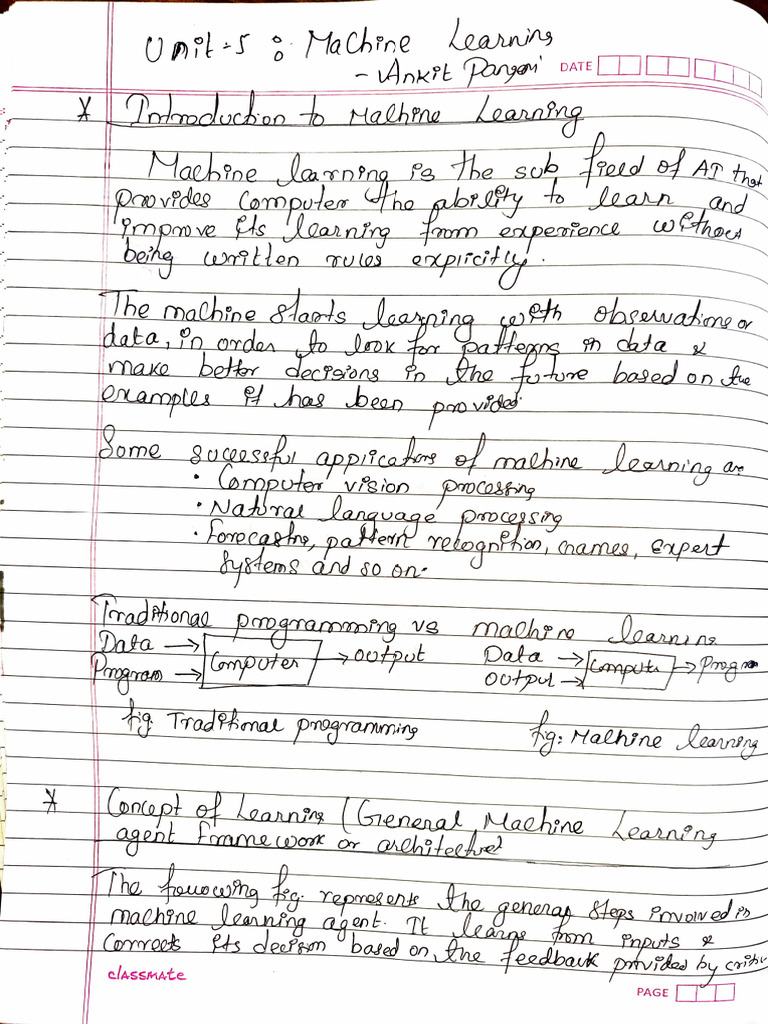 Unit-5 : Machine Learning
- Ankit Pangeni
DATE
* Introduction to Machine Learning
Machine learning is the sub field of AI that
provides computer the ability to learn and
improve its learning from experience without
being written rules explicitly.
The machine starts learning with observations or
data, in order to look for patterns in data &
make better decisions in the future based on the
examples it has been provided.
Some successful applications of machine learning are
• Computer vision processing
• Natural language processing
• Forecasting, pattern recognition, games, expert
systems and so on.
Traditional programming vs machine learning
Data → Computer → output Data → Computer → Program
Program → output →
fig: Traditional programming fig: Machine learning
* Concept of Learning (General Machine Learning
agent framework or architecture)
The following fig. represents the general steps involved in
machine learning agent. It learns from inputs &
corrects its decision based on the feedback provided by critic
classmate
PAGE